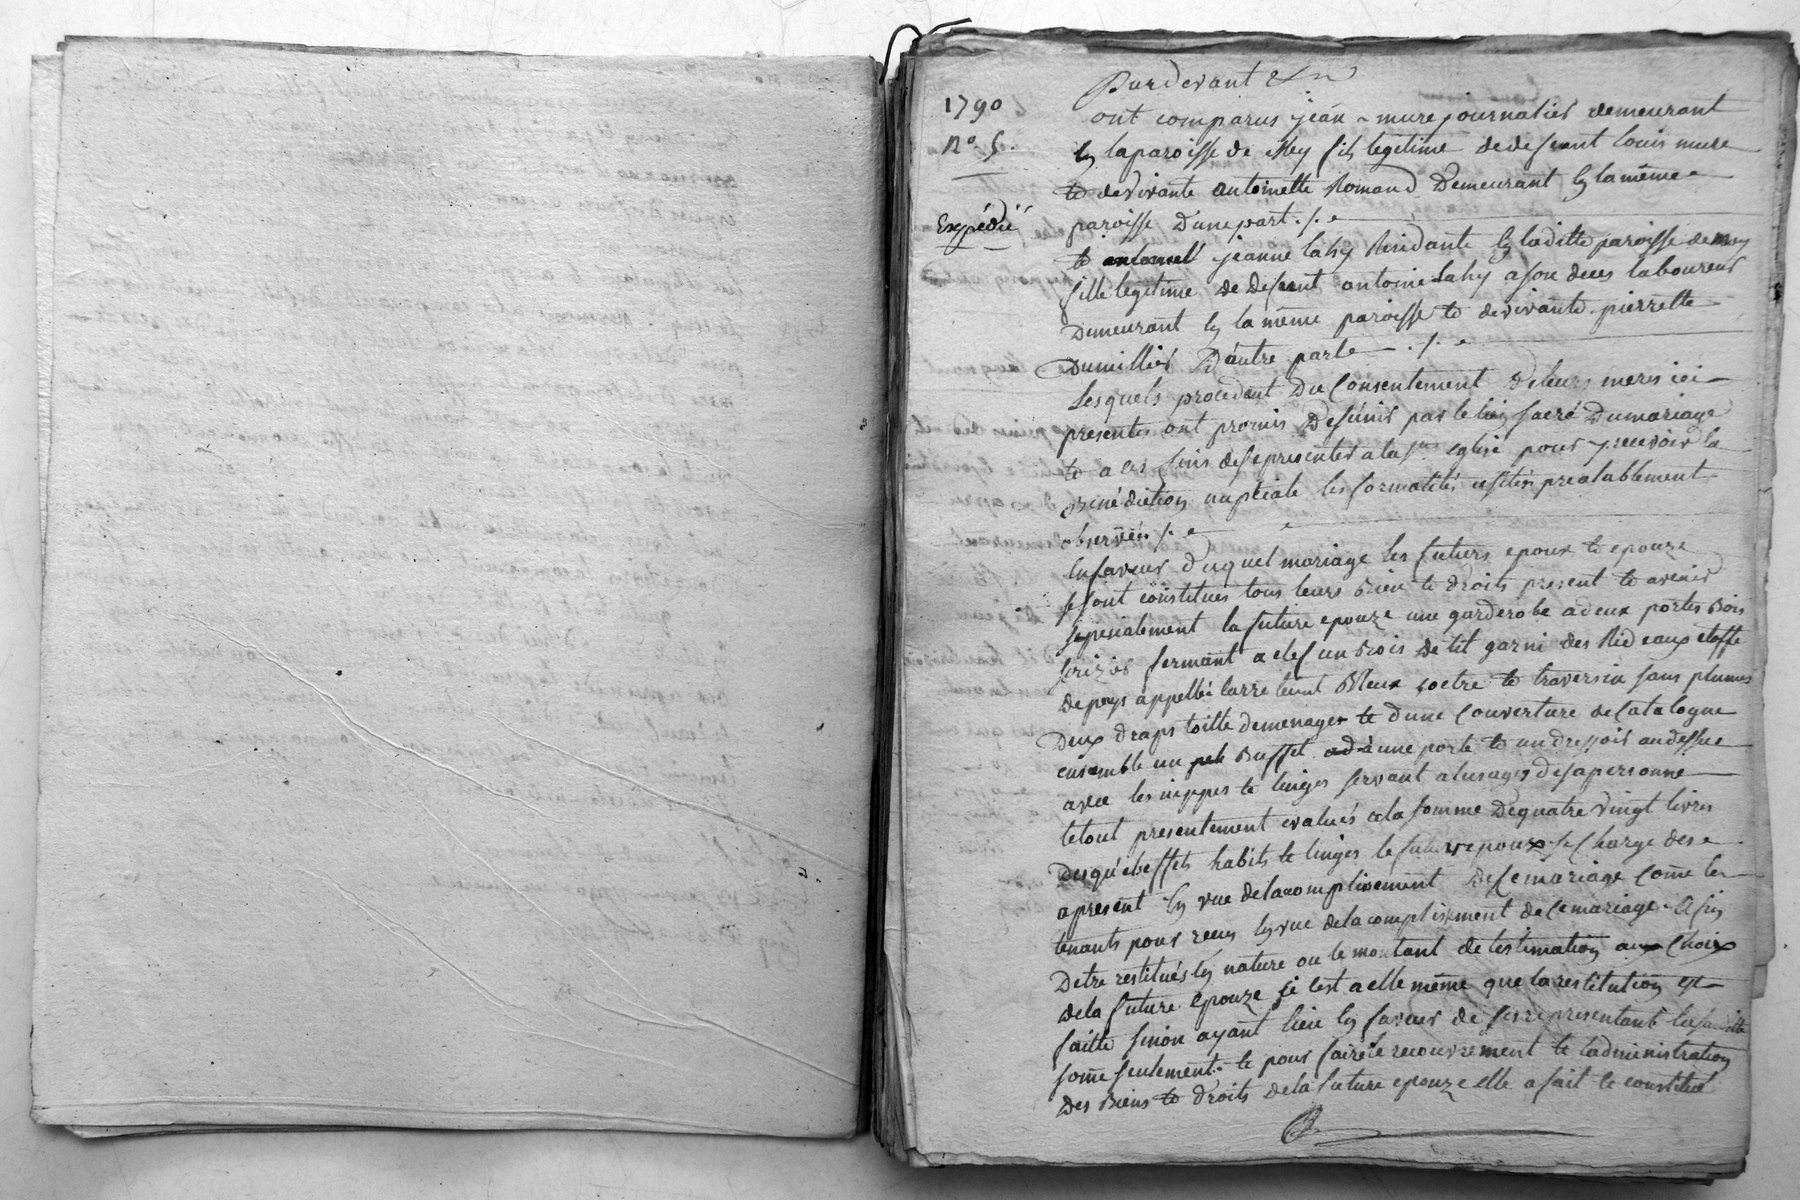 1790
N° 5.
Expédié
Pardevant &
ont comparus jean mure journalier demeurant
en la paroisse de fils legitime de defunt louis mure
et de vivante antoinette Romand Demeurant en la même
paroisse D'une part ./.
et jeanne lahy Residante en laditte paroisse de
fille legitime de Defunt antoine lahy a son deces laboureur
Demeurant en la même paroisse et de vivante pierrette
Dumillier D'autre parte ./.
Lesquels procedant Du Consentement De leurs meres ici
presentes ont promis De s'unir par le lien sacré Du mariage
et a ces fins de se presenter a la Ste eglise pour y recevoir la
Bénédiction nuptiale les formalités préalablement
observées ./.
En faveur duquel mariage les futurs epoux et epouze
se sont constitués tous leurs Bien et droits present et avenir
specialement la future epouze une garderobe a deux portes Bois
fermant a clef un Bois de lit garni des Rideaux etoffe
de pays appellée Bleux et traversin sans plumes
Deux draps toille de menage et d'une Couverture de Catalogne
ensemble un Buffet à une porte et un dressoir au dessus
avec les nippes et linges servant a l'usages de sa personne
le tout presentement evalués a la somme De quatre vingt livres
Desquels effets habits et linges le futur epoux se Charge des
a present en vue de lacomplissement de ce mariage Come les
tenants pour recus en vue de lacomplissement de ce mariage. A fin
D'etre restitués en nature ou le montant de l'estimation au Choix
de la future Epouze si c'est a elle même que la restitution est
faitte sinon ayant lieu en faveur de ses representants la sus ditte
some seulement. et pour faire le recouvrement et l'administration
des Biens et droits de la future epouze elle a fait et constitué